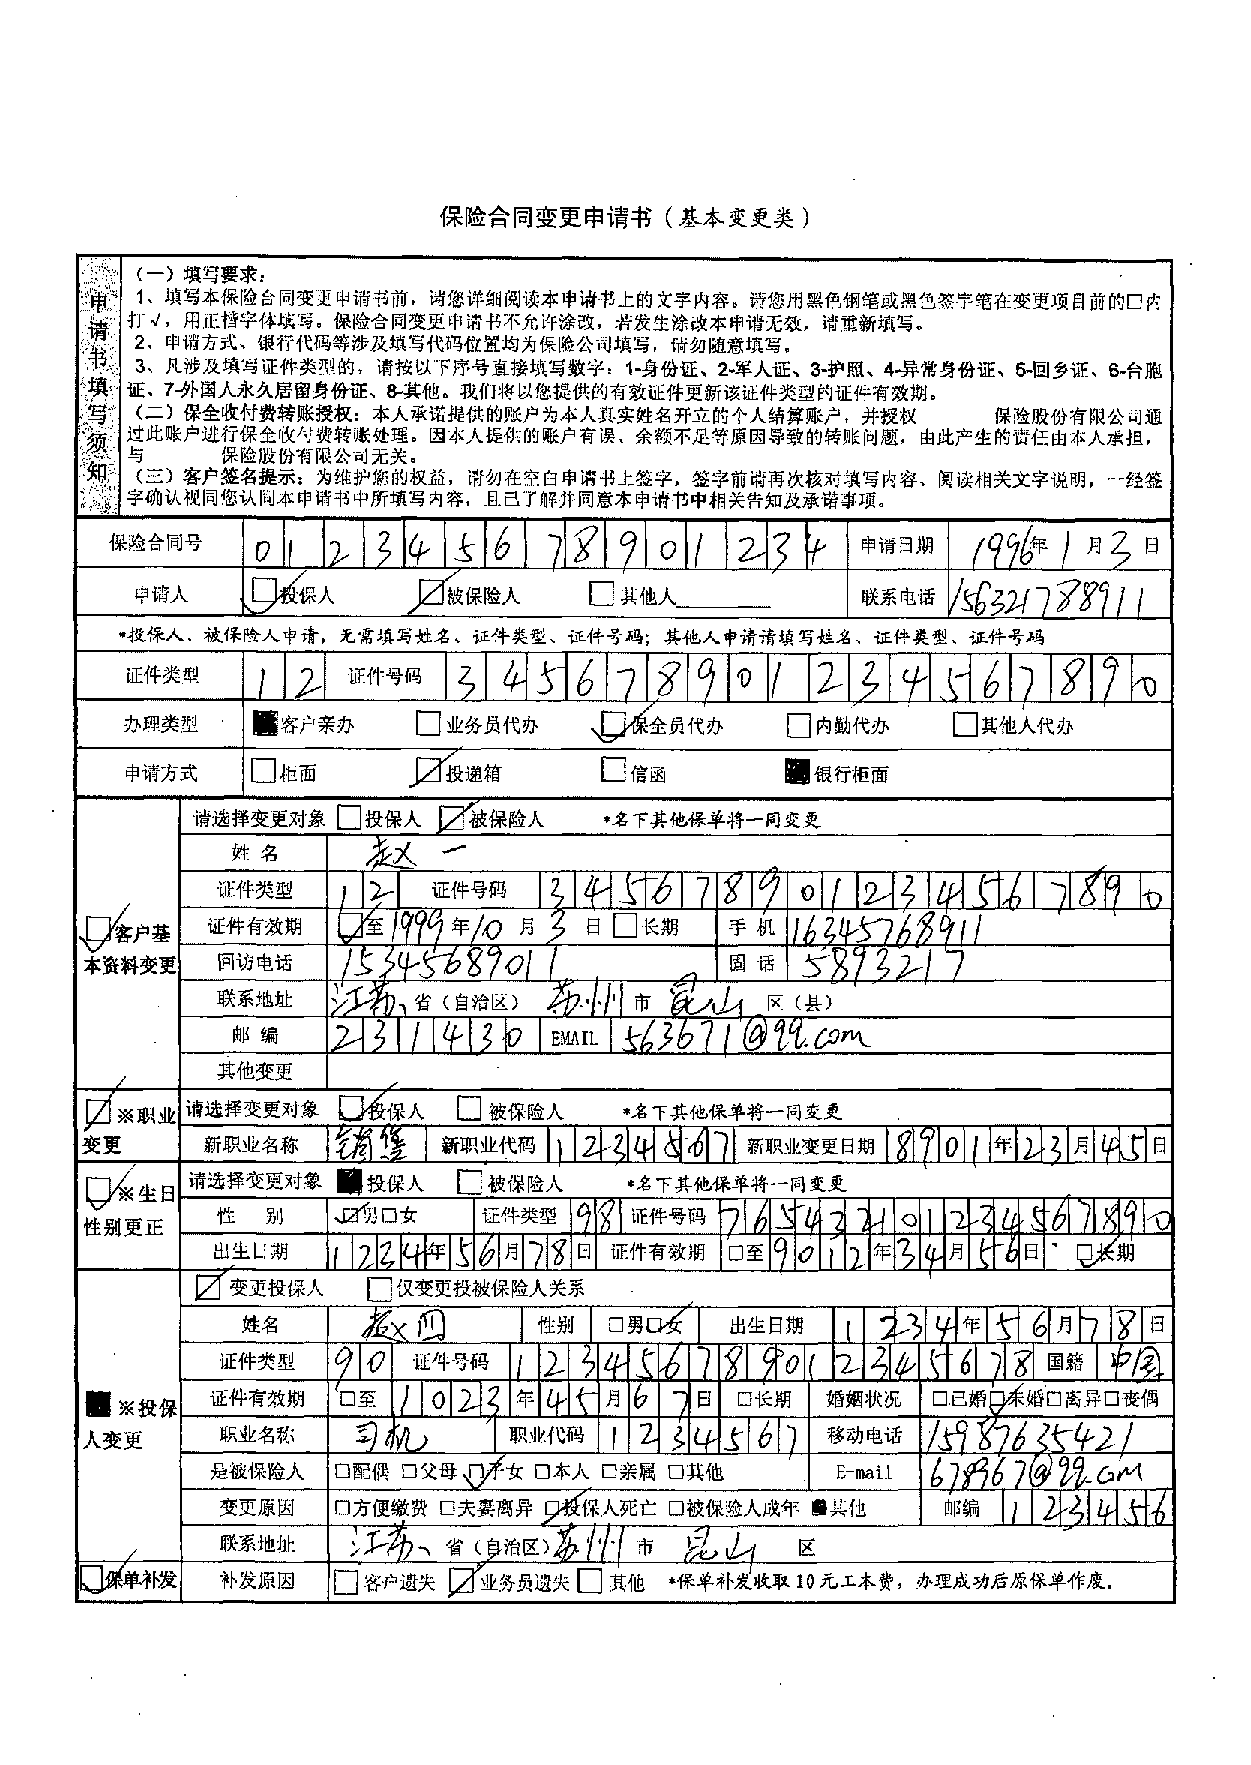 保险合同变更申请书（基本变更类）
申请书填写须知
（一）填写要求：
1、填写本保险合同变更申请书前，请您详细阅读本申请书上的文字内容。请您用黑色钢笔或黑色签字笔在变更项目前的□内
打√，用正楷字体填写。保险合同变更申请书不允许涂改，若发生涂改本申请无效，请重新填写。
2、申请方式、银行代码等涉及填写代码位置均为保险公司填写，请勿随意填写。
3、凡涉及填写证件类型的，请按以下序号直接填写数字：1-身份证、2-军人证、3-护照、4-异常身份证、5-回乡证、6-台胞
证、7-外国人永久居留身份证、8-其他。我们将以您提供的有效证件更新该证件类型的证件有效期。
（二）保全收付费转账授权：本人承诺提供的账户为本人真实姓名开立的个人结算账户，并授权 保险股份有限公司通
过此账户进行保全收付费转账处理。因本人提供的账户有误、余额不足等原因导致的转账问题，由此产生的责任由本人承担，
与 保险股份有限公司无关。
（三）客户签名提示：为维护您的权益，请勿在空白申请书上签字，签字前请再次核对填写内容、阅读相关文字说明，一经签
字确认视同您认同本申请书中所填写内容，且已了解并同意本申请书中相关告知及承诺事项。
保险合同号 012345678901234 申请日期 1996年1月3日
申请人 □投保人 □被保险人 □其他人 联系电话 156321788911
*投保人、被保险人申请，无需填写姓名、证件类型、证件号码；其他人申请请填写姓名、证件类型、证件号码
证件类型 12 证件号码 345678901234567890
办理类型 ■客户亲办 □业务员代办 □保全员代办 □内勤代办 □其他人代办
申请方式 □柜面 □投递箱 □信函 ■银行柜面
□客户基本资料变更
请选择变更对象 □投保人 □被保险人 *名下其他保单将一同变更
姓名 赵一
证件类型 12 证件号码 345678901234567890
证件有效期 □至1999年10月3日 □长期 手机 16345768911
回访电话 15345689011 固话 5893217
联系地址 江苏省（自治区） 苏州市 昆山区（县）
邮编 231430 EMAIL 563671@qq.com
其他变更
□※职业变更
请选择变更对象 □投保人 □被保险人 *名下其他保单将一同变更
新职业名称 销售 新职业代码 1234567 新职业变更日期 8901年23月45日
□※生日性别更正
请选择变更对象 ■投保人 □被保险人 *名下其他保单将一同变更
性别 □男□女 证件类型 98 证件号码 765432101234567890
出生日期 1234年56月78日 证件有效期 □至9012年34月56日 □长期
■※投保人变更
□变更投保人 □仅变更投被保险人关系
姓名 赵四 性别 □男□女 出生日期 1234年56月78日
证件类型 90 证件号码 123456789012345678 国籍 中国
证件有效期 □至1023年45月67日 □长期 婚姻状况 □已婚□未婚□离异□丧偶
职业名称 司机 职业代码 1234567 移动电话 15987635421
是被保险人 □配偶 □父母 □子女 □本人 □亲属 □其他 E-mail 678967@qq.com
变更原因 □方便缴费 □夫妻离异 □投保人死亡 □被保险人成年 ■其他 邮编 123456
联系地址 江苏省（自治区）苏州市 昆山区
□保单补发 补发原因 □客户遗失 □业务员遗失 □其他 *保单补发收取10元工本费，办理成功后原保单作废。